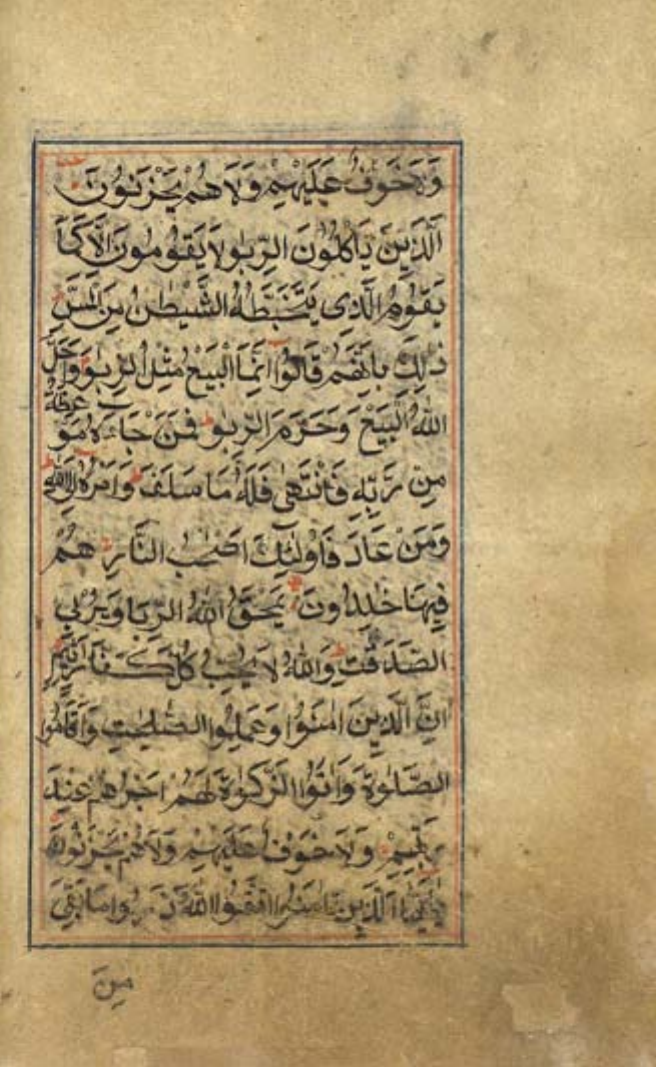 وَلَا خَوْفٌ عَلَيْهِمْ وَلَا هُمْ يَحْزَنُونَ
اَلَّذِينَ يَأْكُلُونَ الرِّبٰوا لَا يَقُومُونَ اِلَّا كَمَا
يَقُومُ الَّذِى يَتَخَبَّطُهُ الشَّيْطٰنُ مِنَ الْمَسِّ
ذٰلِكَ بِاَنَّهُمْ قَالُوا اِنَّمَا الْبَيْعُ مِثْلُ الرِّبٰوا وَاَحَلَّ
اللّٰهُ الْبَيْعَ وَحَرَّمَ الرِّبٰوا فَمَنْ جَاءَهُ مَوْعِظَةٌ
مِنْ رَبِّهِ فَانْتَهٰى فَلَهُ مَا سَلَفَ وَاَمْرُهُ اِلَى اللّٰهِ
وَمَنْ عَادَ فَاُولٰئِكَ اَصْحٰبُ النَّارِ هُمْ
فِيهَا خٰلِدُونَ يَمْحَقُ اللّٰهُ الرِّبَا وَيُرْبِى
الصَّدَقٰتِ وَاللّٰهُ لَا يُحِبُّ كُلَّ كَفَّارٍ اَثِيمٍ
اِنَّ الَّذِينَ اٰمَنُوا وَعَمِلُوا الصّٰلِحٰتِ وَاَقَامُوا
الصَّلٰوةَ وَاٰتَوُا الزَّكٰوةَ لَهُمْ اَجْرُهُمْ عِنْدَ
رَبِّهِمْ وَلَا خَوْفٌ عَلَيْهِمْ وَلَا هُمْ يَحْزَنُونَ
يٰاَيُّهَا الَّذِينَ اٰمَنُوا اتَّقُوا اللّٰهَ وَذَرُوا مَا بَقِىَ
مِنَ